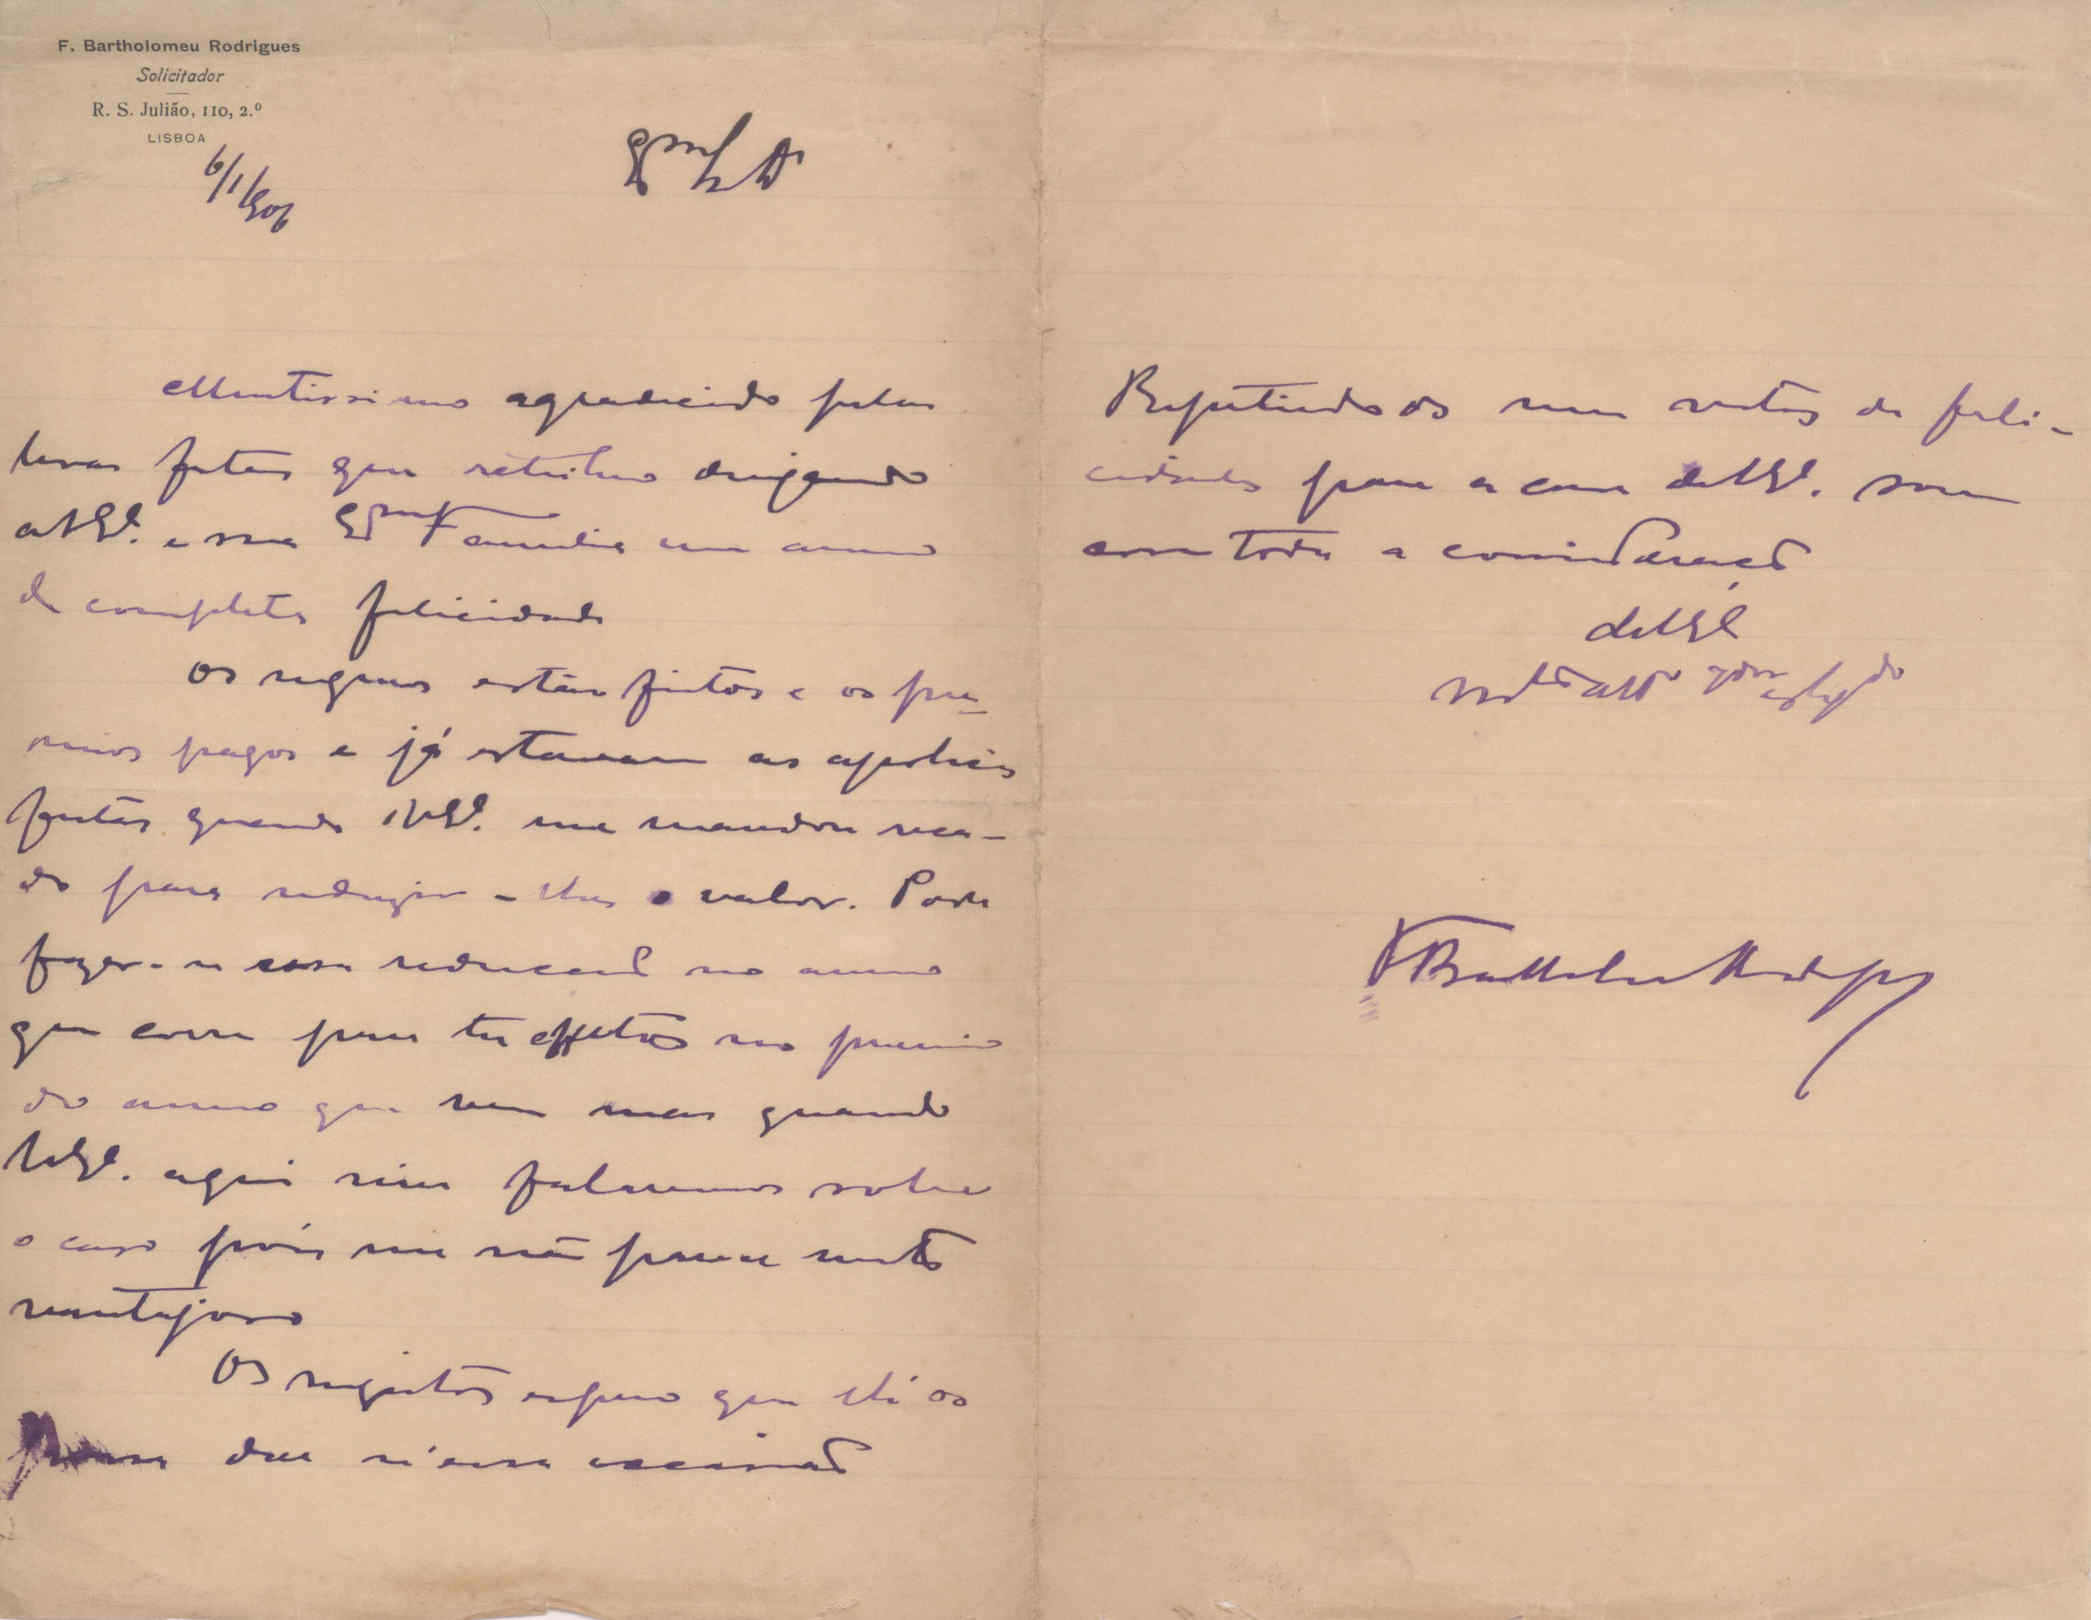 F. Bartholomeu Rodrigues
Solicitador
R. S. Julião, 110, 2.º
LISBOA
6/1/906
Exmo Sr
Muitissimo agradecido pelas
boas festas que retribuo desejando
a V Exª. e sua Exma Familia um anno
de completa felicidade
Os seguros estão feitos e os pre-
mios pagos e já estavam as apolices
feitas quando V Exª. me mandou reca-
do para reduzir-lhes o valor. Pode
fazer-se essa reducção no anno
que corre para ter effeitos no premio
do anno que vem mas quando
V Exª. aqui vier fallaremos sobre
o caso pois me não parece muito
vantajoso
Os registos espero que lhi os
possa dar n'essa occasião
Repetindo os meus votos de feli-
cidades para a casa de V Exª. sou
com toda a consideração
de V Exª
F Bartholomeu Rodrigues